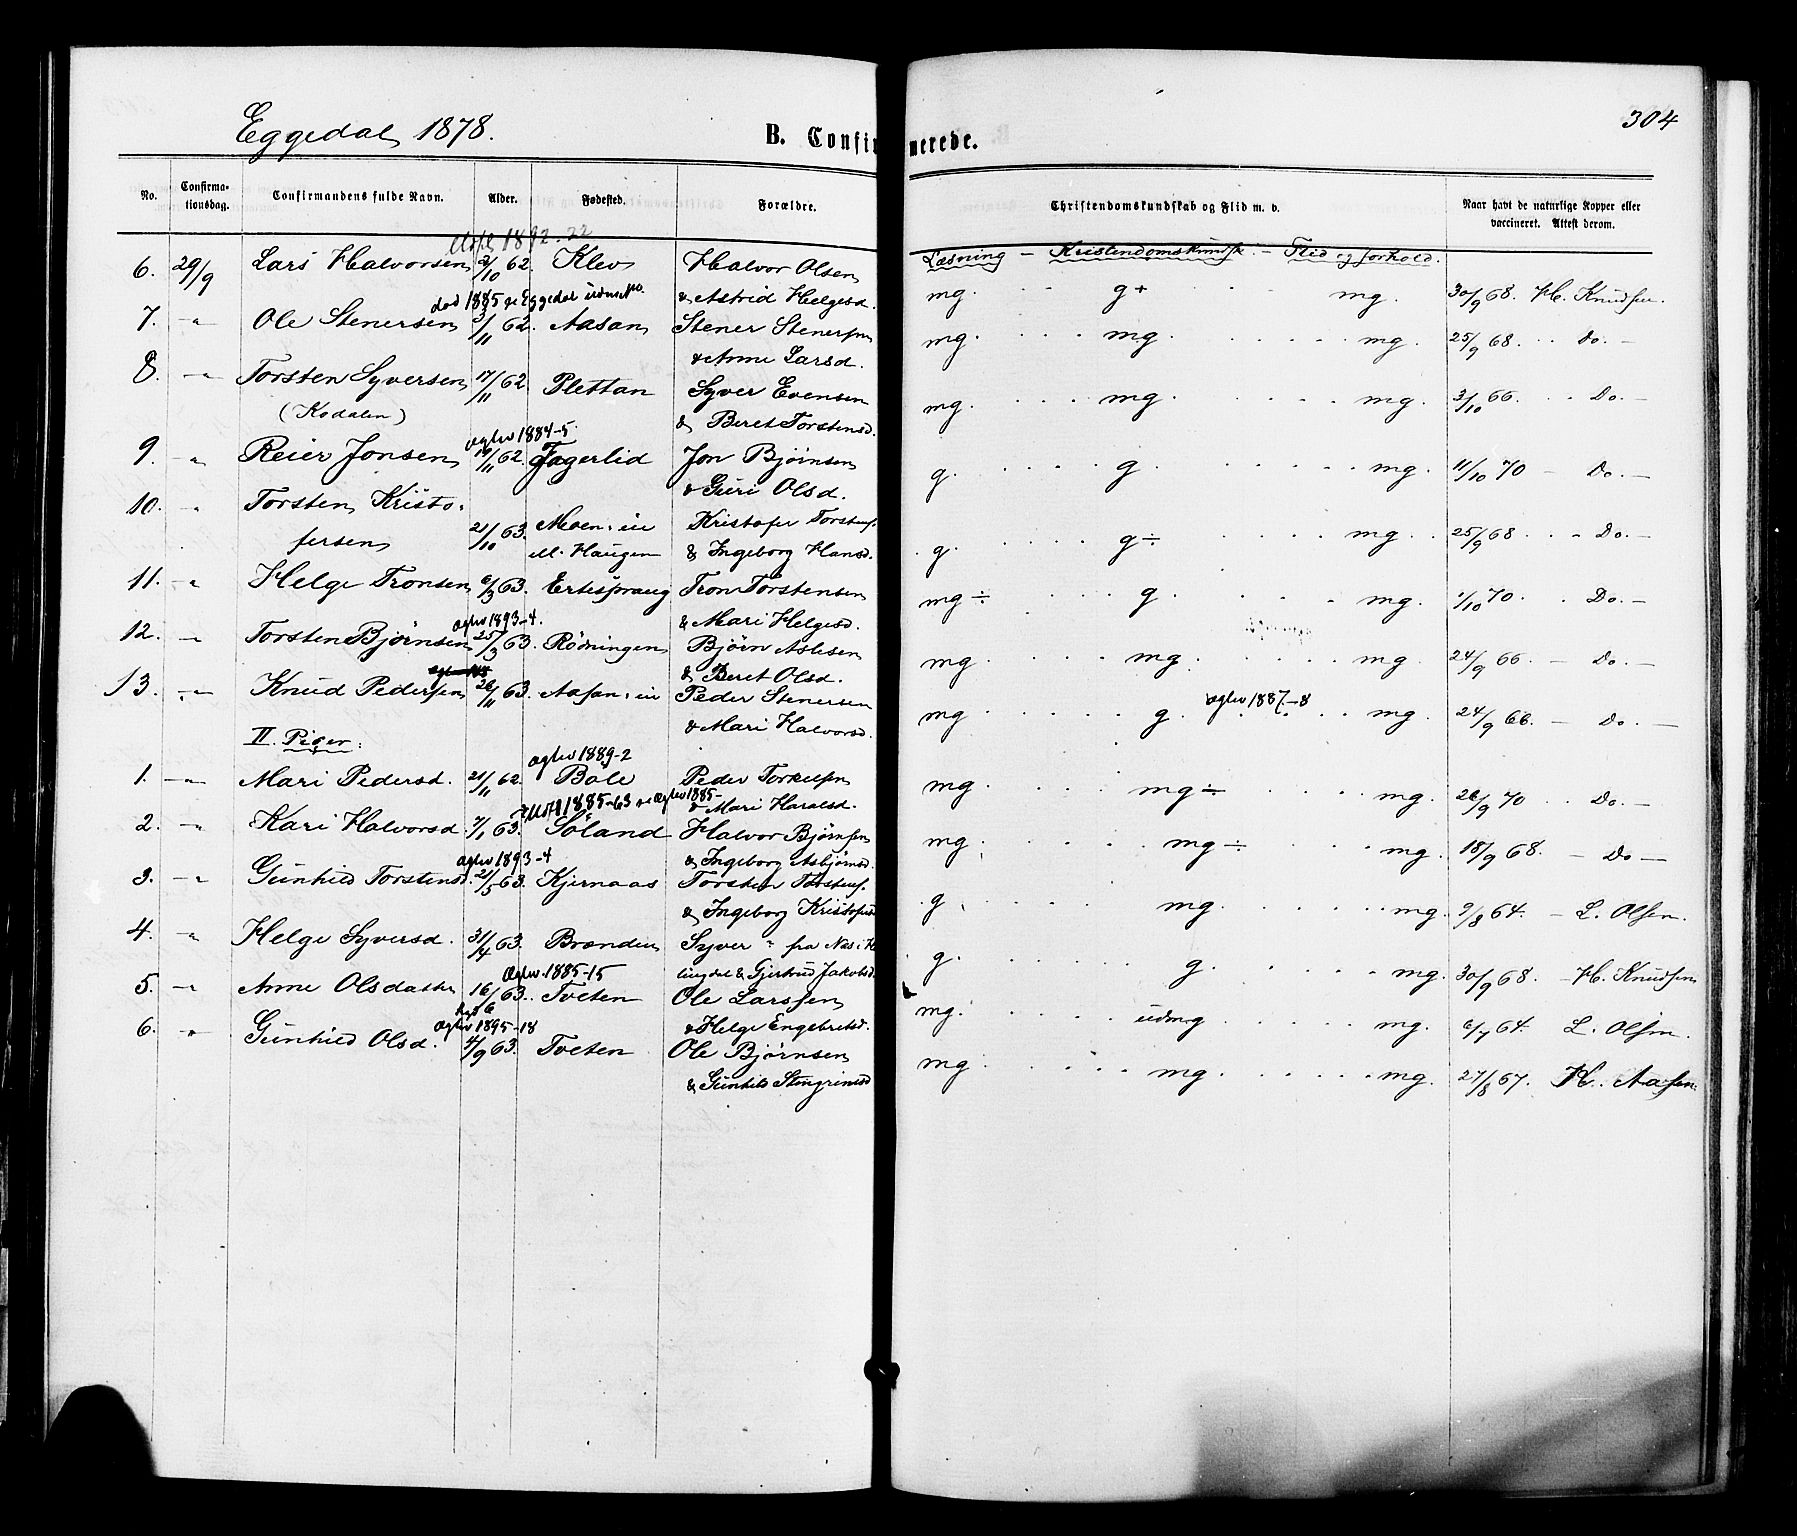 Eggedal 1878.
B. Confirmerede.
304
No. Confirmationsdag. Confirmandens fulde Navn. Alder. Fødested. Forældre. Christendomskundskab og Flid m. v. Naar havt de naturlige Kopper eller vaccineret. Attest derom.
Læsning – Kristendomskundsk. – Flid og forhold.
1892-22
6. 29/9 Lars Halvorsen 3/10 62. Klev Halvor Olsen
& Astrid Helgesd. mg. g+ mg. 30/9 68. H. Knudsen.
død 1885 Eggedal
7. -"- Ole Stenersen 3/11 62. Aasan Stener Stenersen
& Anne Larsd. mg. mg. mg. 25/9 68. Do. –
8. -"- Torsten Syversen 17/11 62. Plettan Syver Evensen
(Kodalen) & Beret Torstensd. mg. mg. mg. 3/10 66. Do. –
ægtev 1884-5.
9. -"- Reier Jonsen 19/11 62. Fagerlid Jon Bjørnsen
& Guri Olsd. g. g. mg. 11/10 70 – Do. –
10. " Torsten Kristo-
fersen 21/10 63. Moen. in Kristofer Torstens.
M. Haugen & Ingeborg Hansd. g. g÷ mg. 25/9 68 Do. –
11. -" Helge Tronsen 6/3 63. Ertesprang Tron Torstensen
& Mari Helgesd. mg÷ g. mg. 1/10 70. Do. –
ægtev 1893-4.
12. -"- Torsten Bjørnsen 25/3 63. Rødningen Bjørn Aslesen
& Beret Olsd. mg. mg. mg. 24/9 66. – Do. –
13. -"- Knud Pedersen 26/11 63. Aasan. in Peder Stenersen
& Mari Halvorsd. mg g. ægtev 1887-8 mg. 24/9 66. – Do. –
II. Piger:
ægtev 1889-2
1. -"- Mari Pedersd. 21/11 62. Bale Peder Torkelsen
& Mari Haraldsd. mg. mg÷ mg. 26/9 70 Do. –
1885-63 ægtev 1885-
2. -"- Kari Halvorsd. 7/1 63. Søland Halvor Bjørnsen
& Ingeborg Asbjørnsd. mg. mg÷ mg. 18/9 68. – Do –
ægtev 1893-4
3. -"- Gunhild Torstensd. 21/5 63. Kjernaas Torsten Torstens.
& Ingeborg Kristofersd. g. mg. mg. 9/8 64. – L. Olsen.
4. -"- Helge Syversd. 31/4 63. Brænden Syver " fra Nes i Hal-
lingdal & Gjertrud Jakobsd. g. g. mg. 30/9 68 – H. Knudsen
ægtev. 1885-15
5. -"- Anne Olsdatter 16/6 63. Tveten Ole Larssen
& Helge Engebretsd. mg. udmg mg. 6/7 64. L. Olsen.
ægtev 1895-18
6. " Gunhild Olsd. 4/9 63. Tveten Ole Bjørnsen
& Gunhild Stengrimsd mg. mg. mg. 27/8 67. H. Aasen.